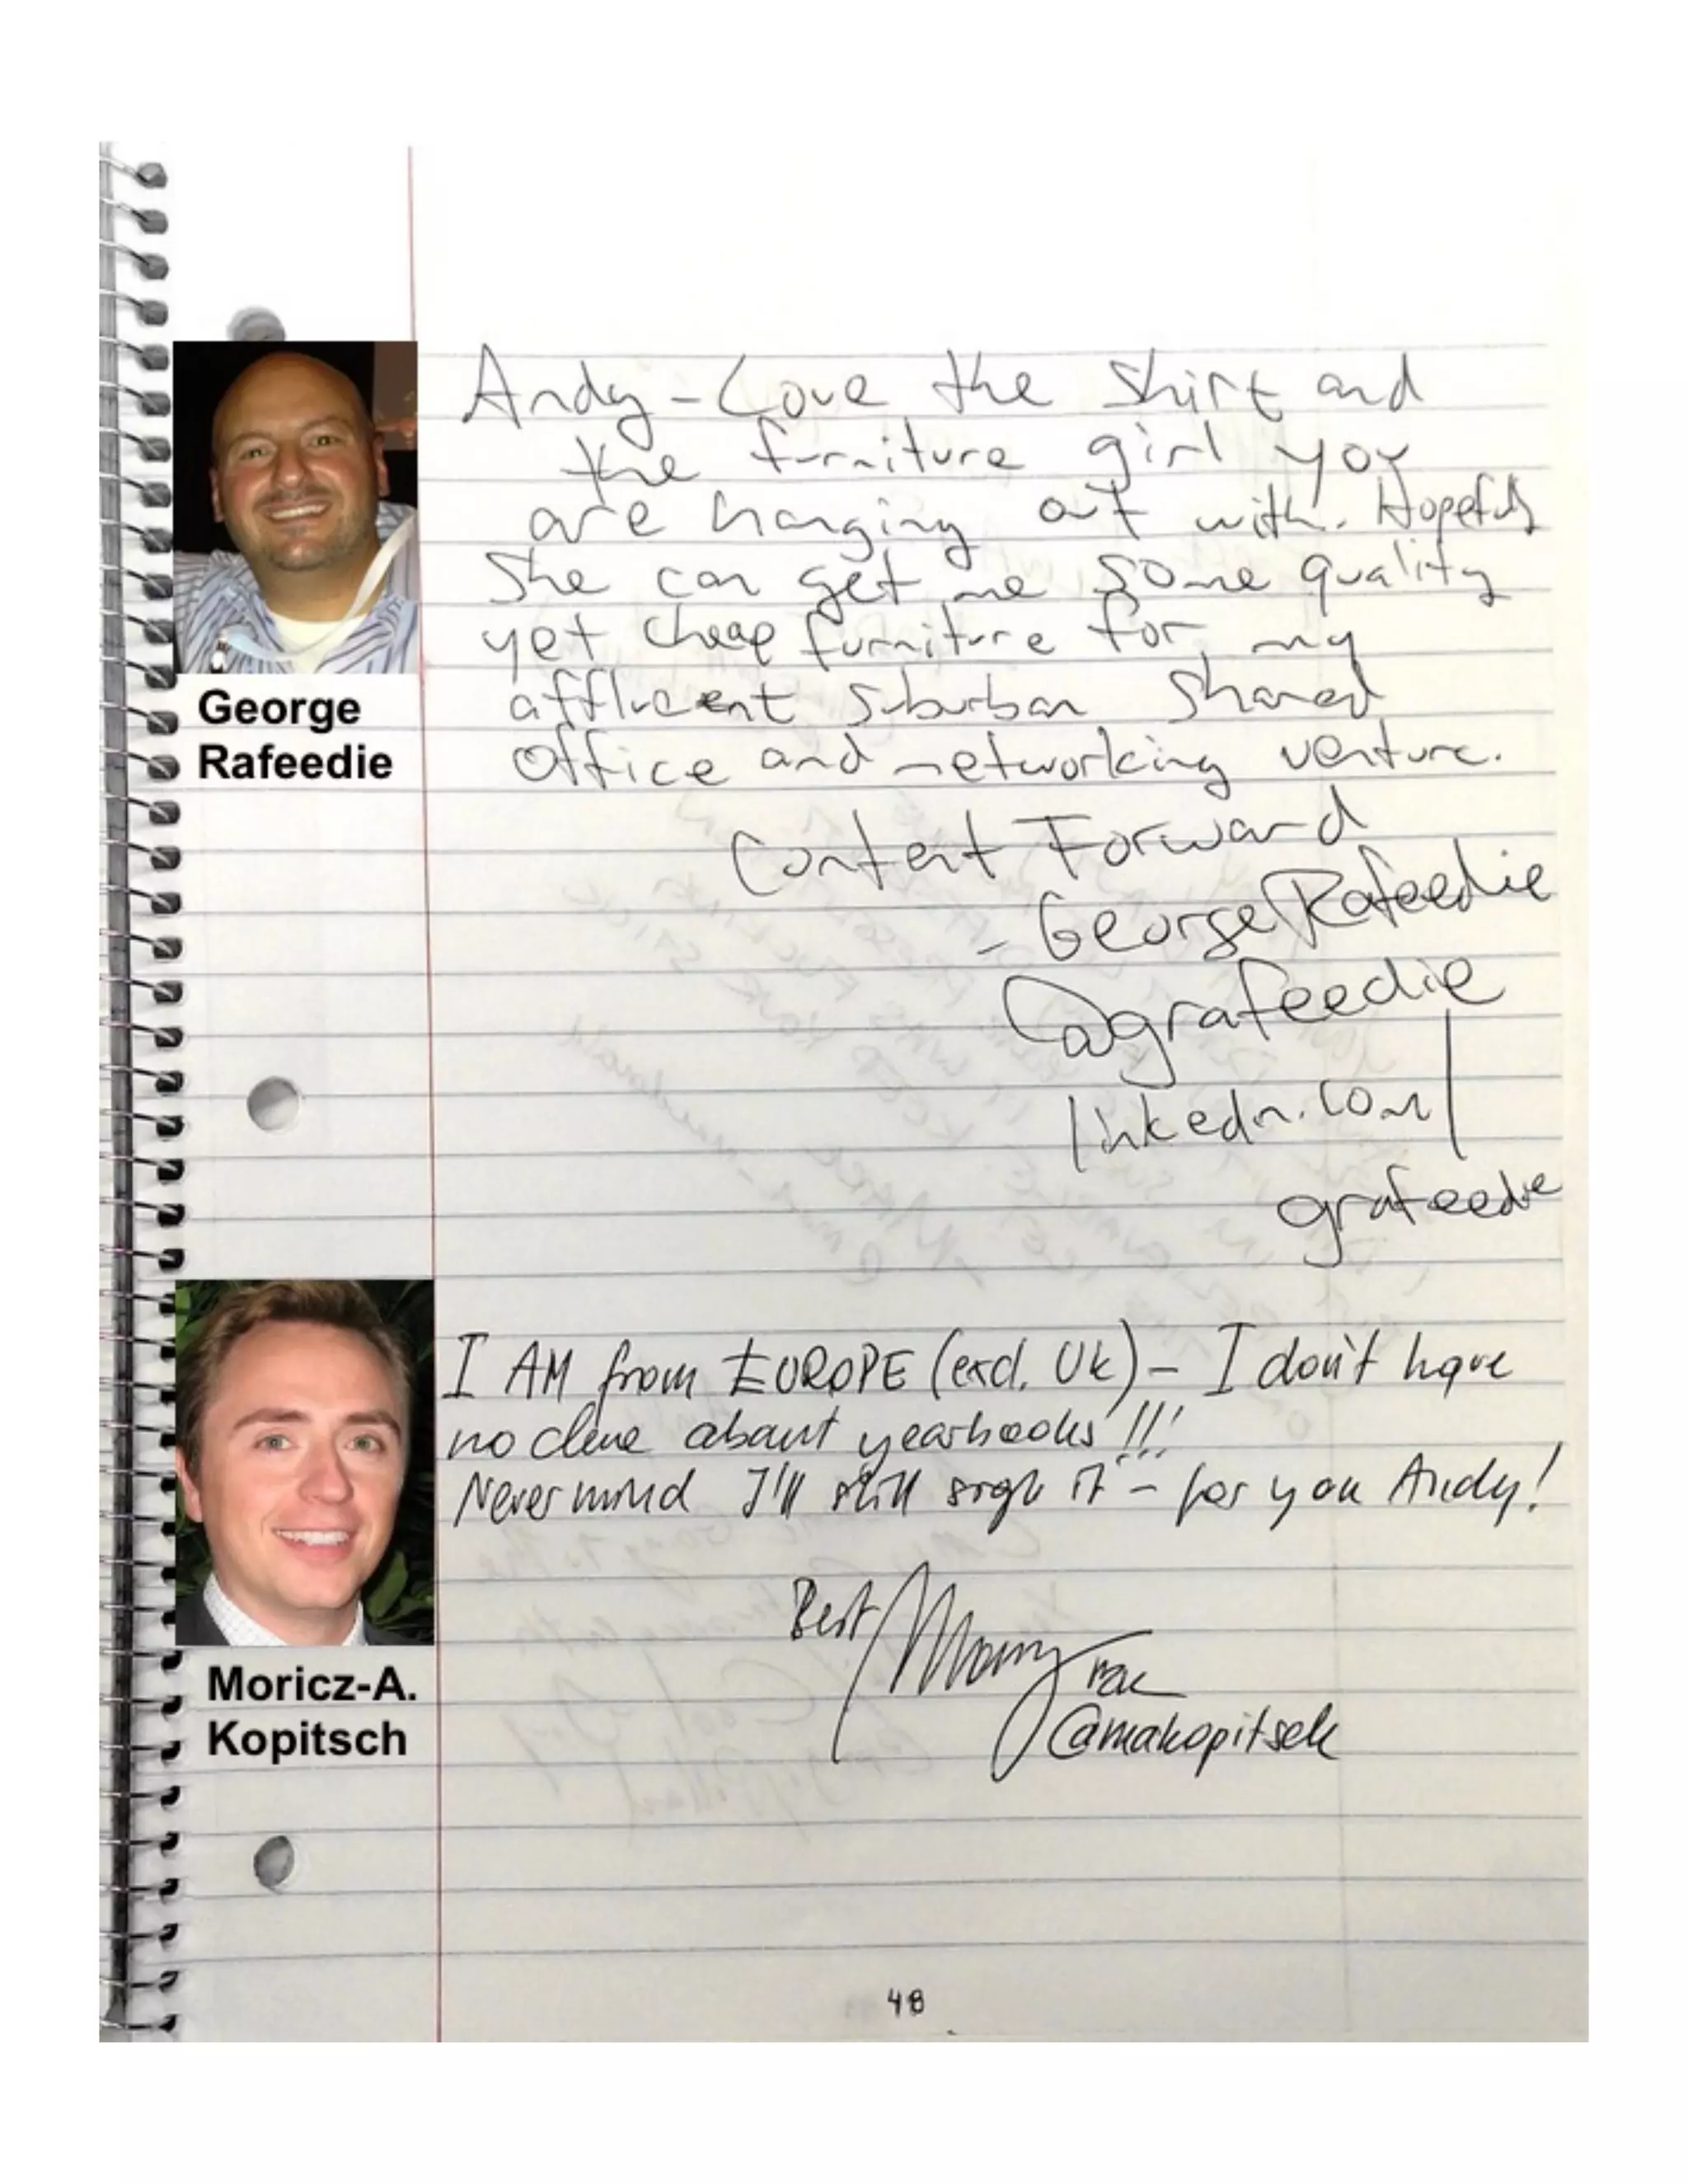 Andy - Love the shirt and
the furniture girl you
are hanging out with. Hopefully
She can get me some quality
yet cheap furniture for my
affluent suburban shared
office and networking venture.
Content Forward
- George Rafeedie
@grafeedie
linkedn.com/
grafeedie
George
Rafeedie
I AM from EUROPE (excl. UK) - I don't have
no clue about yearbooks!!!
Nevermind I'll still sign it - for you Andy!
Best
@makopitsch
Moricz-A.
Kopitsch
48